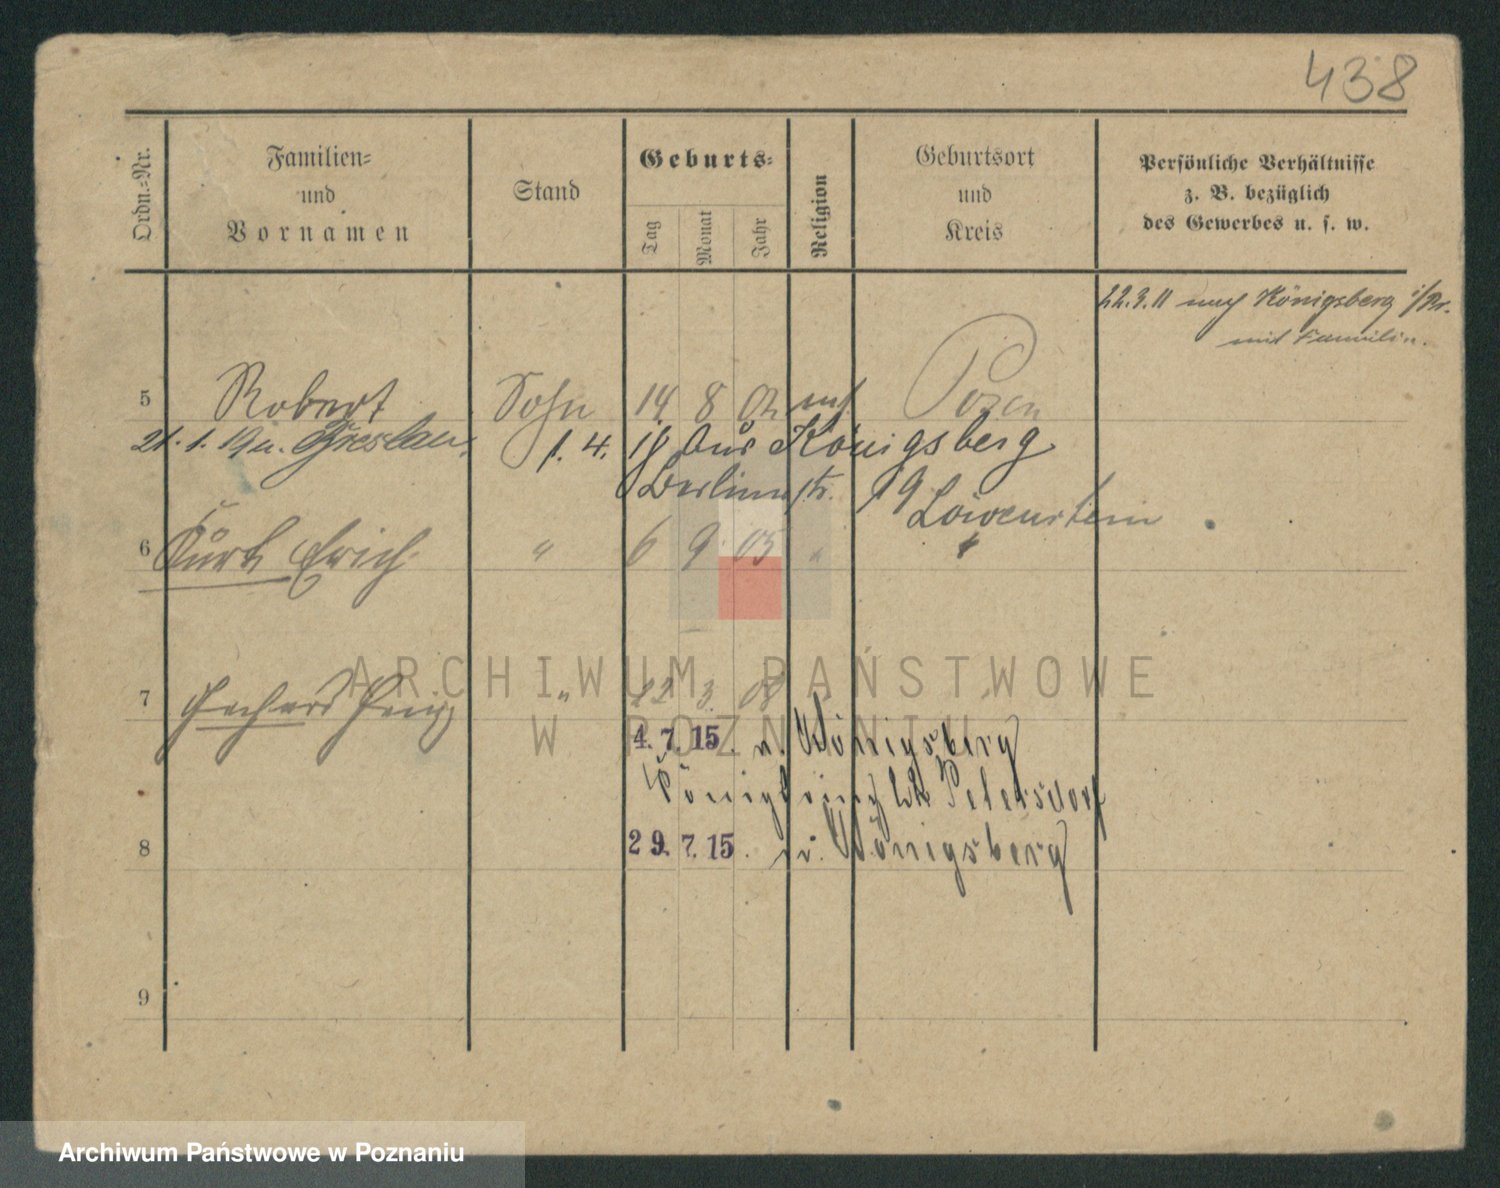 438
Ordn.-Nr.
Familien-
und
Vornamen
Stand
Geburts-
Tag
Monat
Jahr
Religion
Geburtsort
und
Kreis
Persönliche Verhältnisse
z. B. bezüglich
des Gewerbes u. s. w.
22.3.11 nach Königsberg i/Pr.
mit Familie.
5 Robert Sohn 14 8 02 Posen
21. 1. Breslau.
1. 4. 18 aus Königsberg
Berlinerstr. 19
Löwenstein
6 Kurt Erich " 6 9 05 " "
7 Gerhard " 12 3 08
4. 7. 15. n. Königsberg
Petersdorf
8 29. 7. 15. v. Königsberg
9
ARCHIWUM PAŃSTWOWE
W POZNANIU
Archiwum Państwowe w Poznaniu